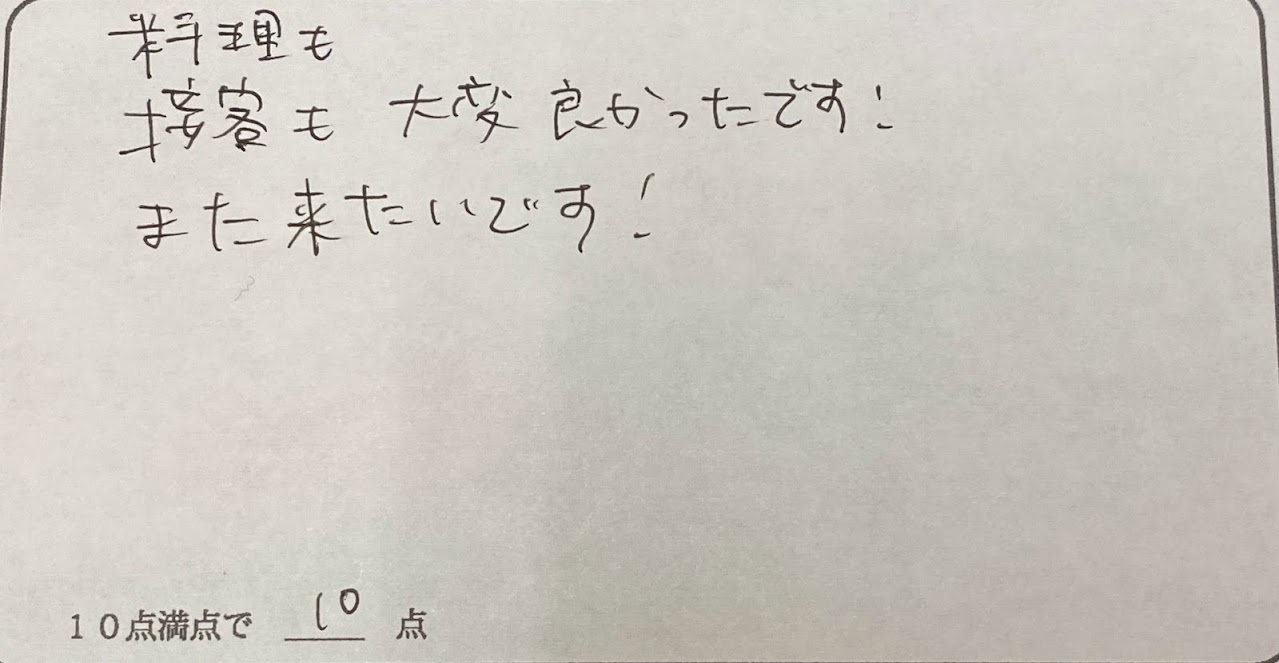 料理も
接客も 大変 良かったです!
また来たいです!
10点満点で 10 点